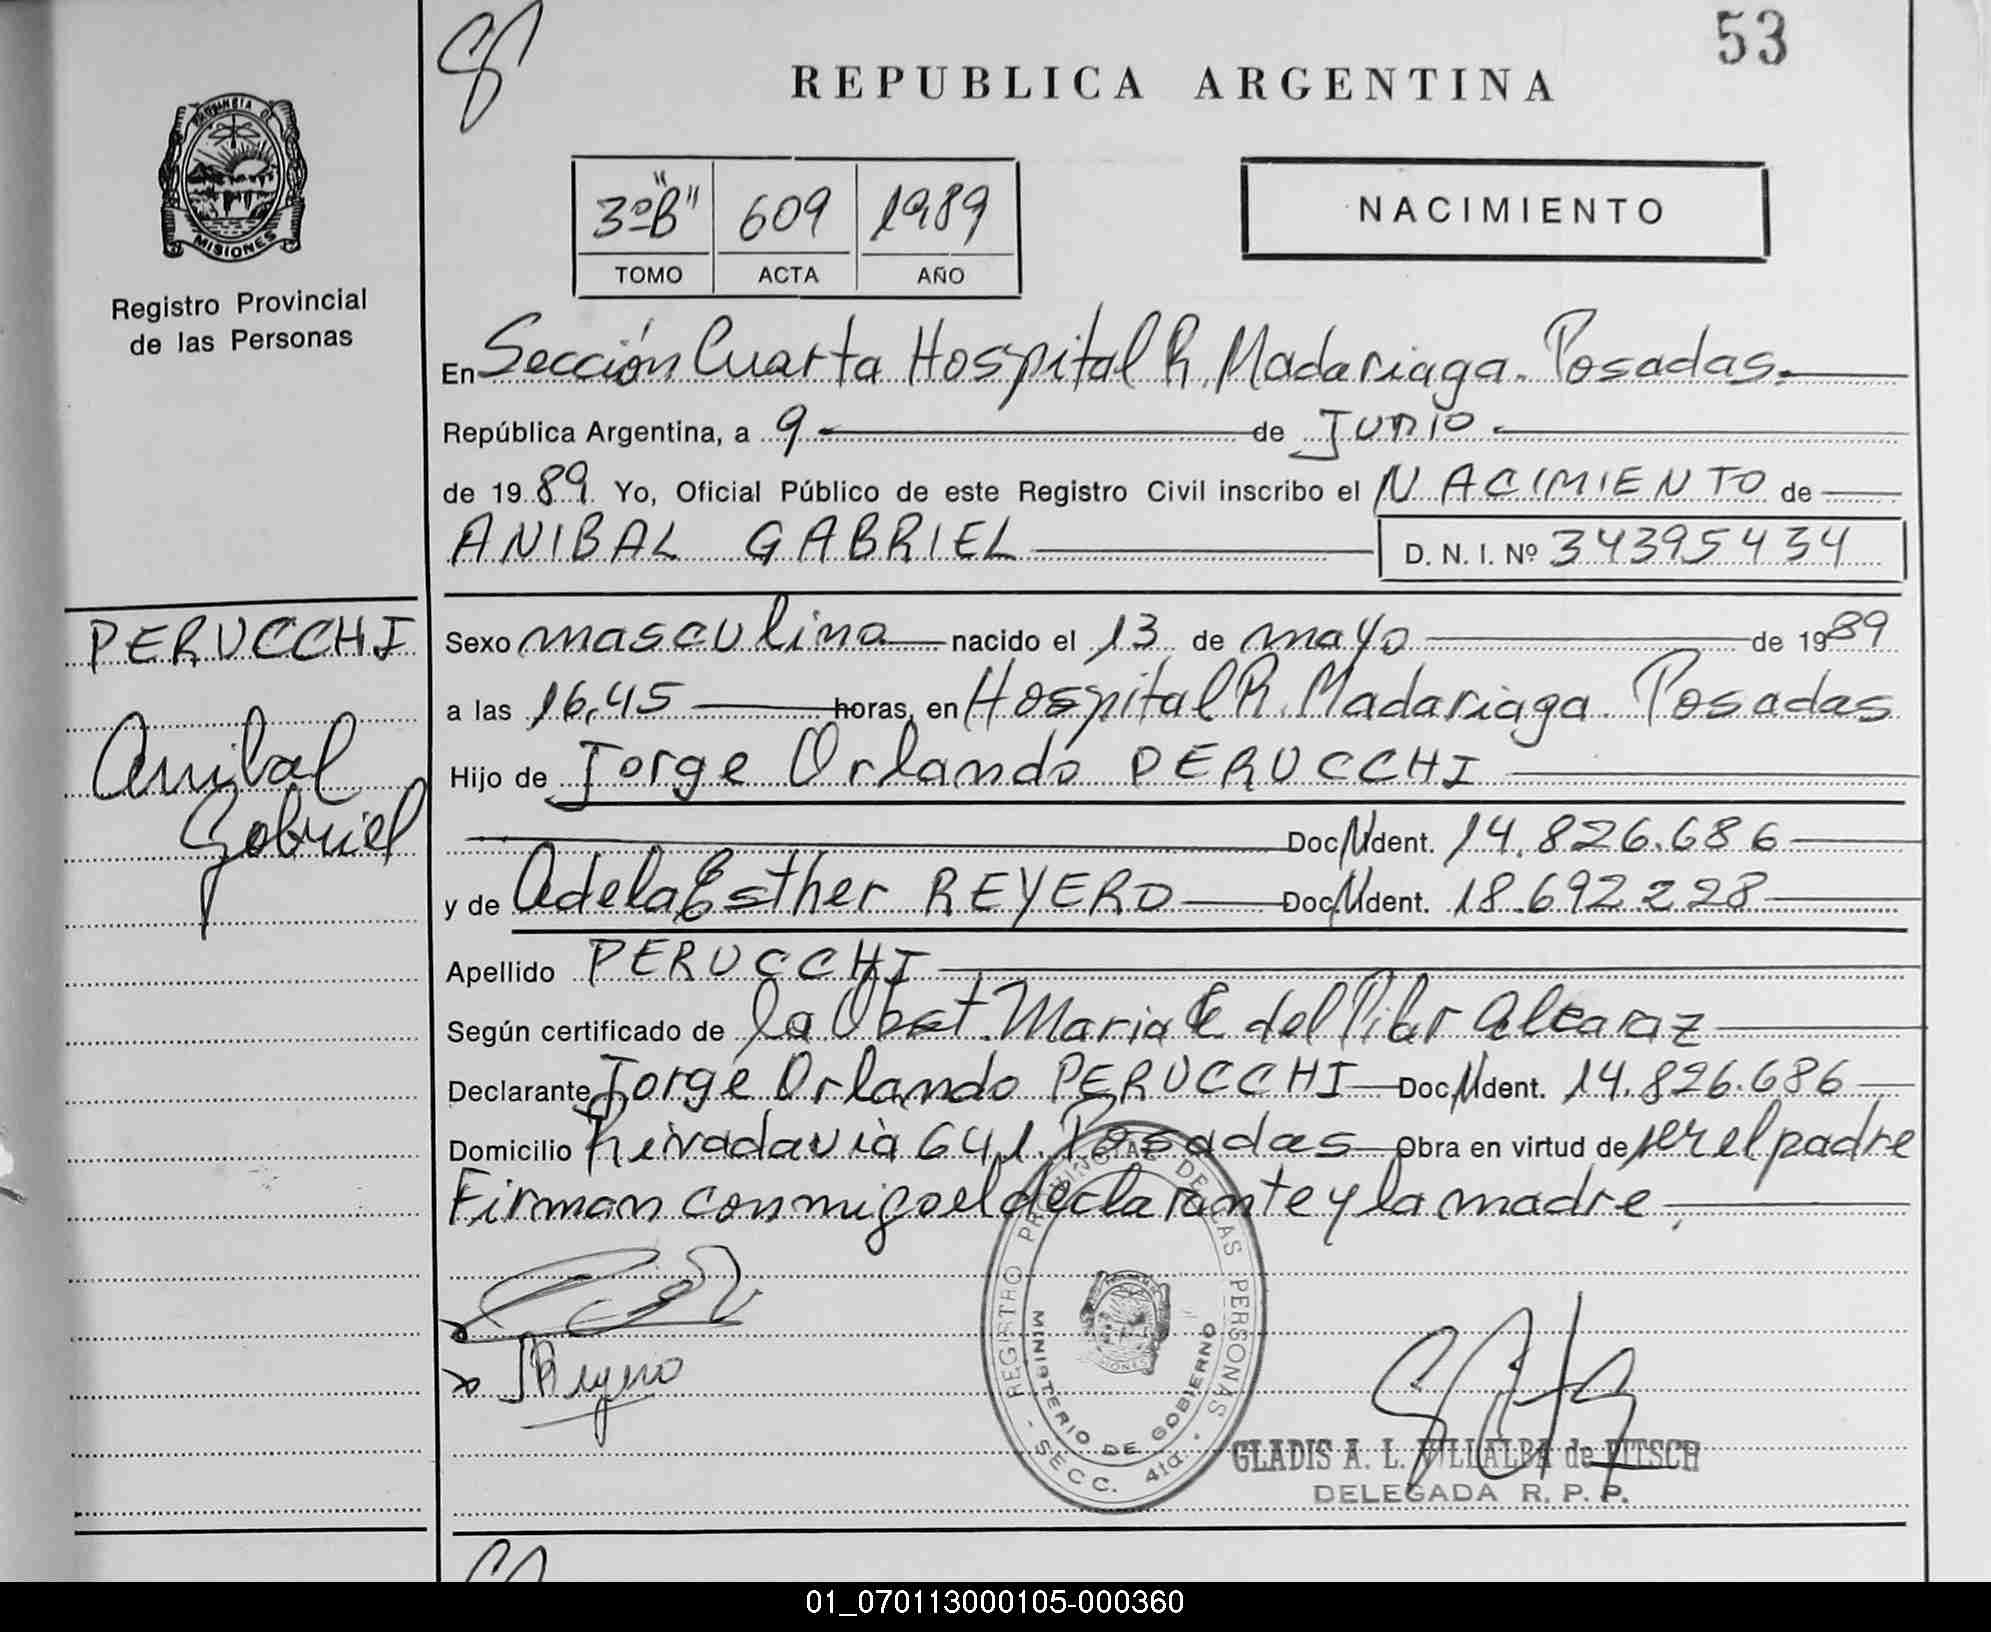 53
REPUBLICA ARGENTINA
PROVINCIA DE
MISIONES
Registro Provincial
de las Personas
3º "B" 609 1989
TOMO ACTA AÑO
NACIMIENTO
En Sección Cuarta Hospital R. Madariaga. Posadas.
República Argentina, a 9 de Junio
de 1989 Yo, Oficial Público de este Registro Civil inscribo el NACIMIENTO de
ANIBAL GABRIEL D. N. I. Nº 34395434
PERUCCHI
Anibal
Gabriel
Sexo masculino nacido el 13 de mayo de 1989
a las 16,45 horas, en Hospital R. Madariaga. Posadas
Hijo de Jorge Orlando PERUCCHI
Doc. N Ident. 14.826.686
y de Adela Esther REYERO Doc. N Ident. 18.692.228
Apellido PERUCCHI
Según certificado de la Obst. Maria E del Pilar Alcaraz
Declarante Jorge Orlando PERUCCHI Doc. N Ident. 14.826.686
Domicilio Rivadavia 641. Posadas Obra en virtud de ser el padre
Firman conmigo el declarante y la madre.
REGISTRO PROVINCIAL DE LAS PERSONAS
MINISTERIO DE GOBIERNO
- SECC. 4ta. -
MISIONES
GLADIS A. L. VILLALBA de PITSCH
DELEGADA R. P. P.
01_070113000105-000360